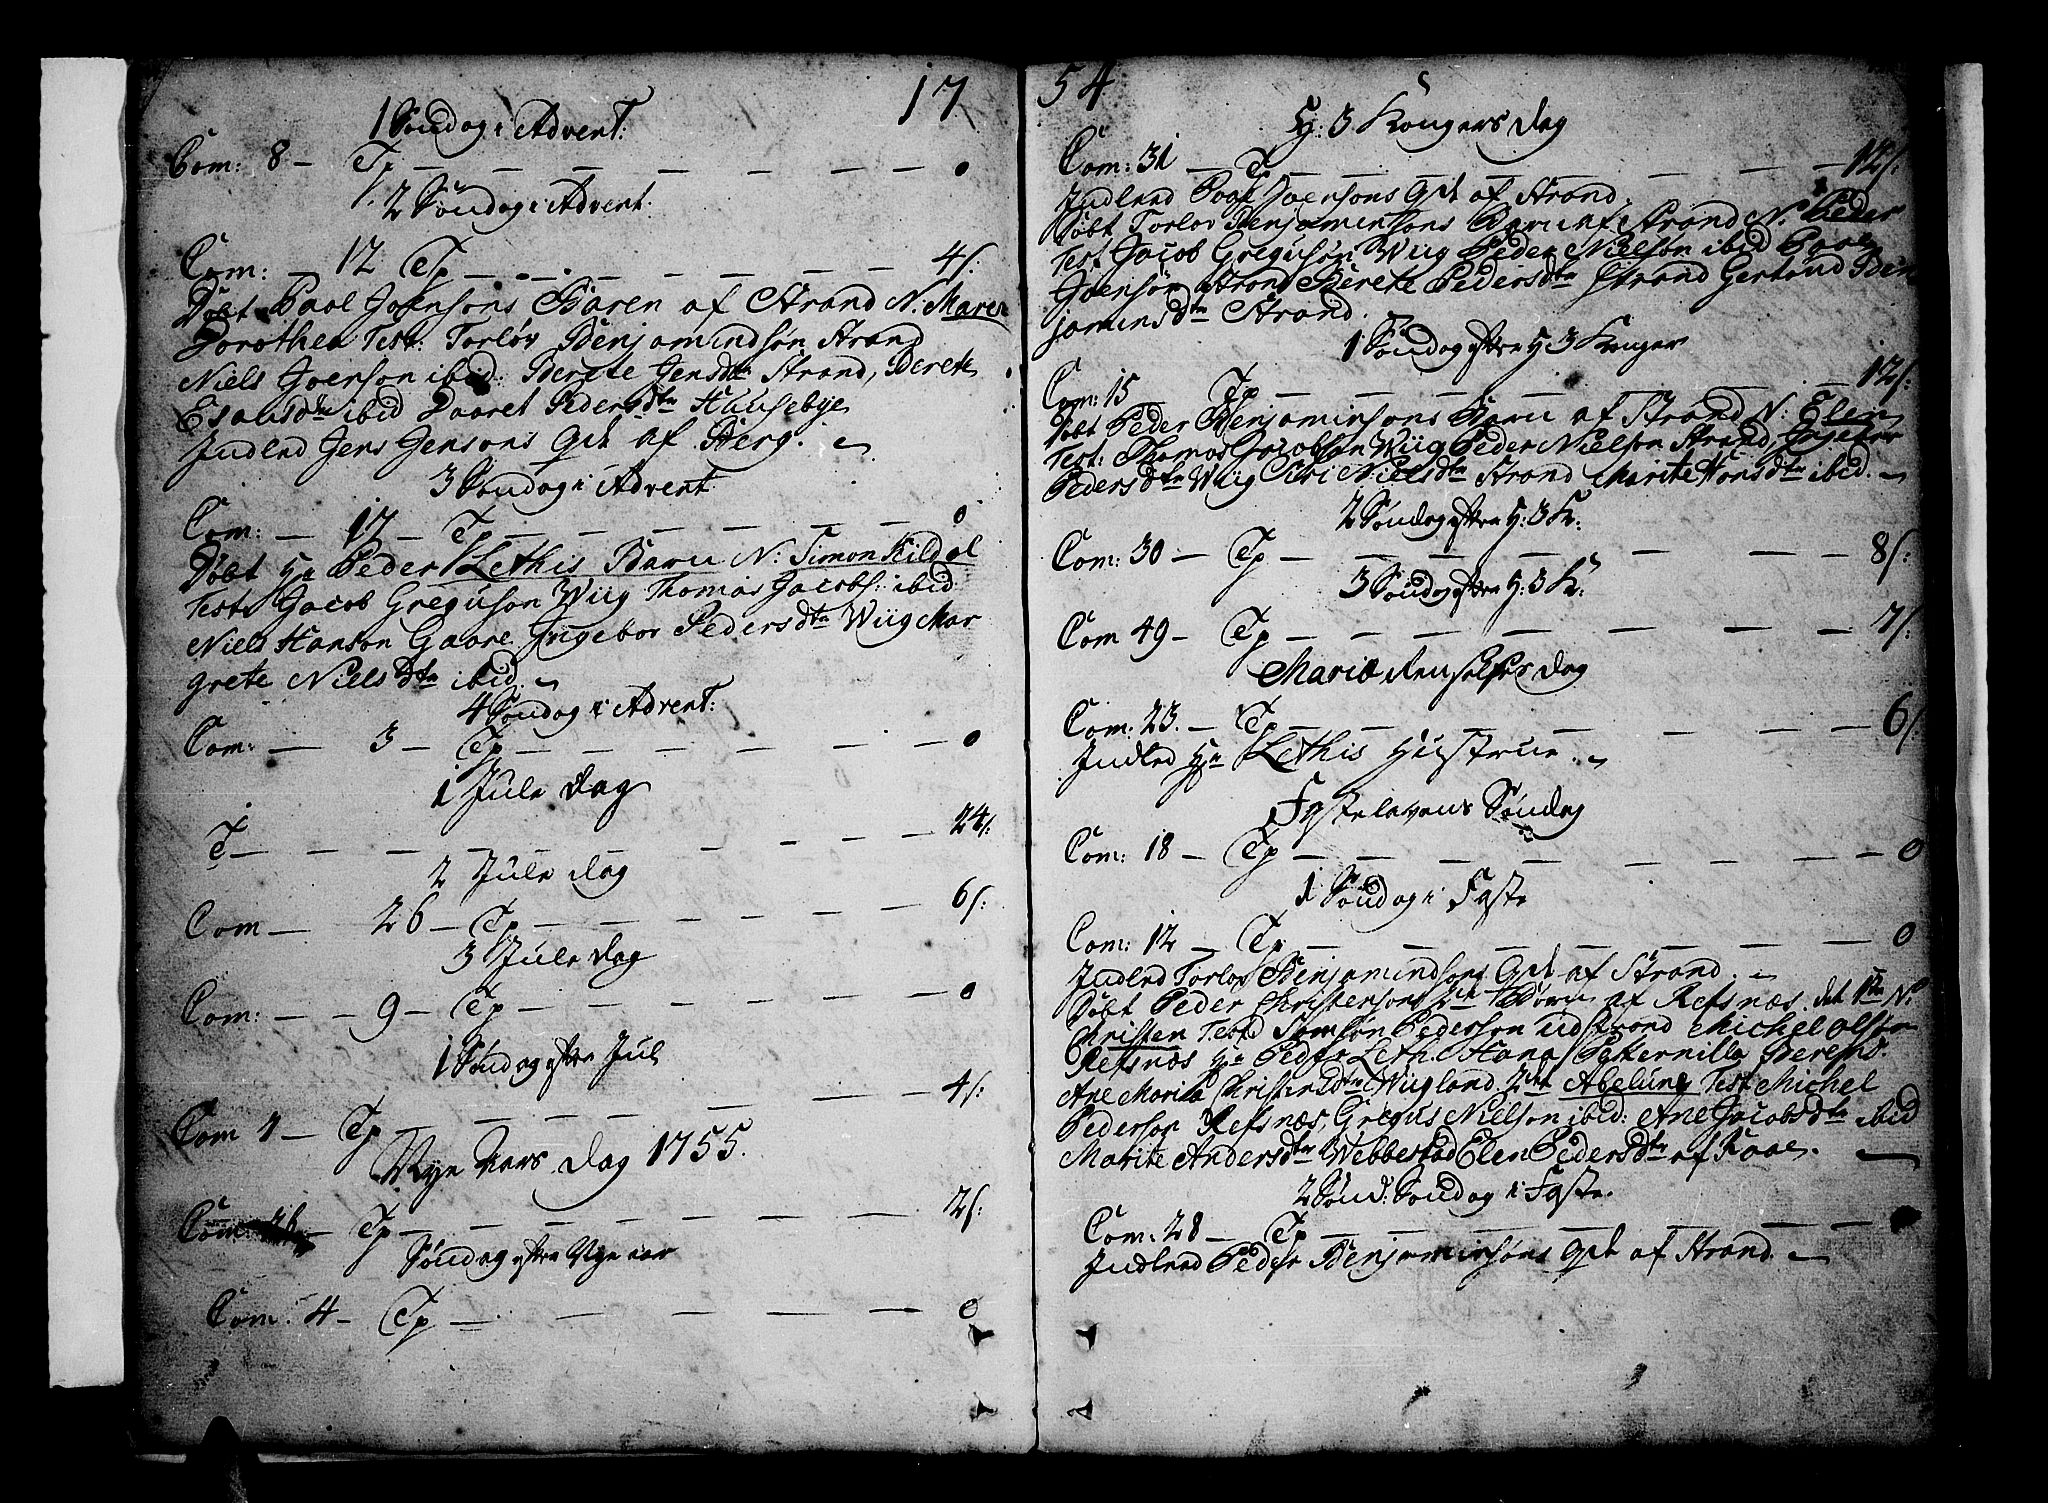 17
1 Søndag i Advent:
Com: 8 — Tp — — — — — — — 0
2 Søndag i Advent:
Com: — 12 Tp — — — — — — — 4/:
Døbt Paol Joensons Baren af Strand N. Maren
Dorothea Test: Torlov Benjamindsøn Strand
Niels Joenson ibid: Berete Jensdtr Strand, Berete
Esausdtr ibid Paaret Pedersdtr Hausebye
Indled Jens Jensons Qvi af Berg.
3 Søndag i Advent
Com: — 17 — Tp — — — — — — 0
Døbt Hr Peder Lethis Barn N: Simon Kildal
Test: Jacob Greguson Wiig Thomas Jacobs: ibid
Niels Hanson Gaare Ingebor Pedersdtr Wiig Mar
grete Nielsdtr ibid.
4 Søndag i Advent:
Com: — 3 — Tp — — — — — — 0
1 Jule Dag
T — — — — — — — 24/:
2 Jule dag
Com — 26 — Tp — — — — — — 6/:
3 Jule dag
Com: — — 9 — Tp — — — — — — 0
1 Søndag efter Jul
Com 7 — Tp — — — — — — 4/:
Nye Aars Dag 1755.
Com: — Tp — — — — — — — 2/:
Søndag efter Nye aar
Com: 4 — Tp — — — — — — 0
54
H: 3 Kongers Dag
Com: 31 — Tp — — — — — — — 12/:
Indled Paal Joensons Qvi af Strand.
Døbt Torlov Benjaminsons Barn af Strand N. Peder
Test Jacob Greguson Wiig Peder Nielson ibid Paal
Joensøn Strand Berete Pedersdtr Strand Gertrud Ben
jaminsdtr Strand.
1 Søndag efter H 3 Konger
Com: 15 — Tp — — — — — — — 12/:
Døbt Peder Benjaminsons Barn af Strand N: Elen
Test: Thomas Jacobsøn Wiig Peder Nielson Strand, Ingebor
Pedersdtr Wiig Siri Nielsdtr Strand Marite Hansdtr ibid.
2 Søndag efter H: 3 K:
Com: 30 — Tp — — — — — — — 8/:
3 Søndag efter H: 3 K:
Com 49 — Tp — — — — — — — 7/:
Mariæ Renselses Dag
Com: 23. — Tp — — — — — — — 6/:
Indled Hr Lethis Hustrue.
Fastelavens Søndag
Com: 18 — Tp — — — — — — — 0
1 Søndag i Faste
Com: 12 — Tp — — — — — — — 0
Indled Torlov Benjamindsons Qvi af Strand.
Døbt Peder Christensons Børn af Refsnæs. det 1te N:
Christen Test: Samsøn Pederson Udstrand Michel Olsøn
Refsnæs Hr Peder Leth. Hans Petternilla Berens.
Ane Marita Christensdtr Wiigland. 2det Abelune Test Michel
Pederson Refsnæs, Gregus Nielson ibid: Ane Jacobsdtr ibid
Marite Andersdtr Webbestad Elen Pedersdtr af Kaal.
2 Sønd: Søndag i Faste.
Com: 28 — Tp — — — — — — —
Indled Peder Benjaminsøns Qvi af Strand.